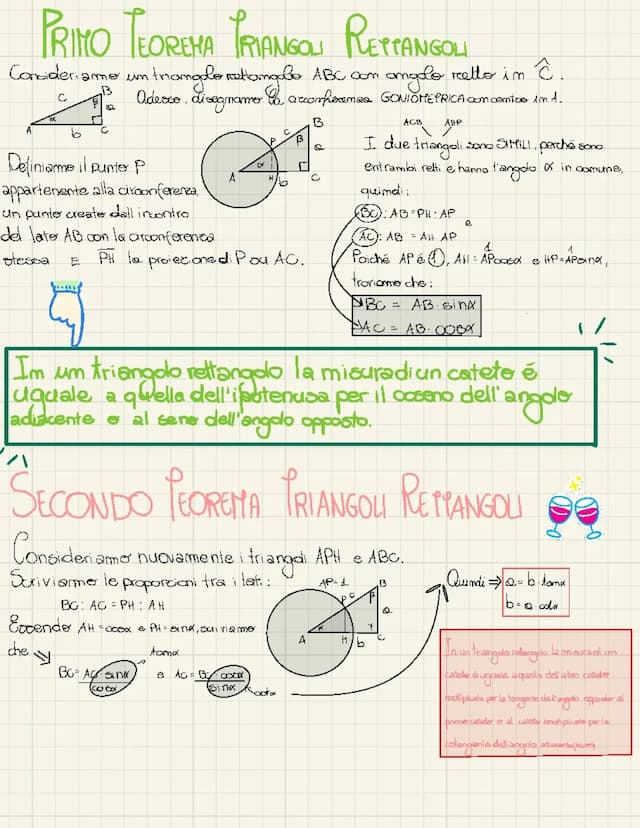 PRIMO TEOREMA TRIANGOLI RETTANGOLI
Consideriamo un triangolo rettangolo ABC con angolo retto in Ĉ.
Adesso, disegnamo la circonferenza GONIOMETRICA con centro in 1.
A
c
B
a
b
C
α
β
ACB AHP
I due triangoli sono SIMILI, perché sono
entrambi retti e hanno l'angolo α in comune,
quindi:
BC : AB = PH : AP
e
AC : AB = AH AP
Poiché AP é 1, AH = APcosα e HP = APsinα,
1 1
troviamo che:
BC = AB · sinα
AC = AB · cosα
A
P
c
B
β
a
α
H
b
C
Definiamo il punto P
appartenente alla circonferenza,
un punto creato dall'incontro
del lato AB con la circonferenza
stessa E PH la proiezione di P su AC.
In un triangolo rettangolo la misura di un cateto é
uguale a quella dell'ipotenusa per il coseno dell'angolo
adiacente o al seno dell'angolo opposto.
SECONDO TEOREMA TRIANGOLI RETTANGOLI
Consideriamo nuovamente i triangoli APH e ABC.
Scriviamo le proporzioni tra i lati:
BC : AC = PH : AH
Essendo AH = cosα e PH = sinα, scriviamo
che
BC = AC · sinα / cosα
tanα
e AC = BC · cosα / sinα
cotα
AP=1
A
P
c
B
β
a
α
H
γ
b
C
Quindi ⇒ a = b · tanα
b = a · cotα
In un triangolo rettangolo la misura di un
cateto é uguale a quella dell'altro cateto
moltiplicata per la tangente dell'angolo opposto al
primo cateto o al cateto moltiplicato per la
cotangente dell'angolo adiacente